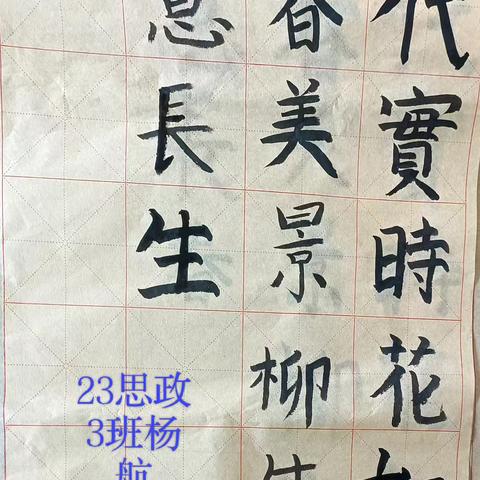 代實時花
春美景柳
息長生
23思政
3班杨
航